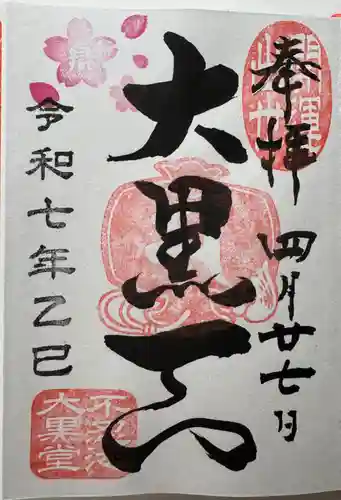 奉拝
四月廿七日
大黒天
令和七年乙巳
大黒堂